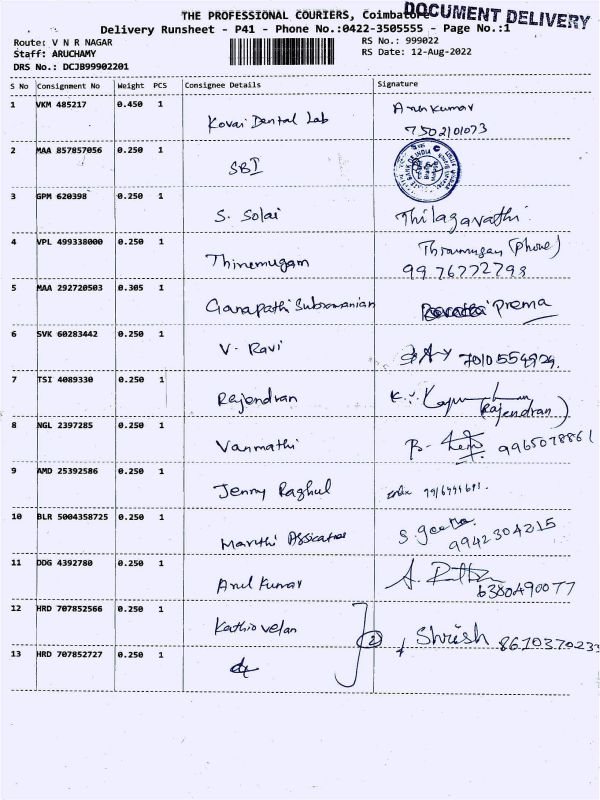 THE PROFESSIONAL COURIERS, Coimbatore
DOCUMENT DELIVERY
Delivery Runsheet - P41 - Phone No.:0422-3505555 - Page No.:1
Route: V N R NAGAR
RS No.: 999022
Staff: ARUCHAMY
RS Date: 12-Aug-2022
DRS No.: DCJB99902201
S No Consignment No Weight PCS Consignee Details Signature
1 VKM 485217 0.450 1 Kovai Dental Lab Arunkumar
7502101073
2 MAA 857857056 0.250 1 SBI
3 GPM 620398 0.250 1 S. Solai Thilagavathi
4 VPL 499338000 0.250 1 Thirumugam Thirumugam (Phone)
9976772798
5 MAA 292720503 0.305 1 Ganapathi Subramanian Prema
6 SVK 60283442 0.250 1 V. Ravi 7010554924
7 TSI 4089330 0.250 1 Rajendran K.
(Rajendran)
8 NGL 2397285 0.250 1 Vanmathi B. 9965078861
9 AMD 25392586 0.250 1 Jenny Raghul
10 BLR 5004358725 0.250 1 Maruthi S. geetha
9942304215
11 DDG 4392780 0.250 1 Arul Kumar A.
6380490077
12 HRD 707852566 0.250 1 Kathir velan (2) Shrish 8610370233
13 HRD 707852727 0.250 1